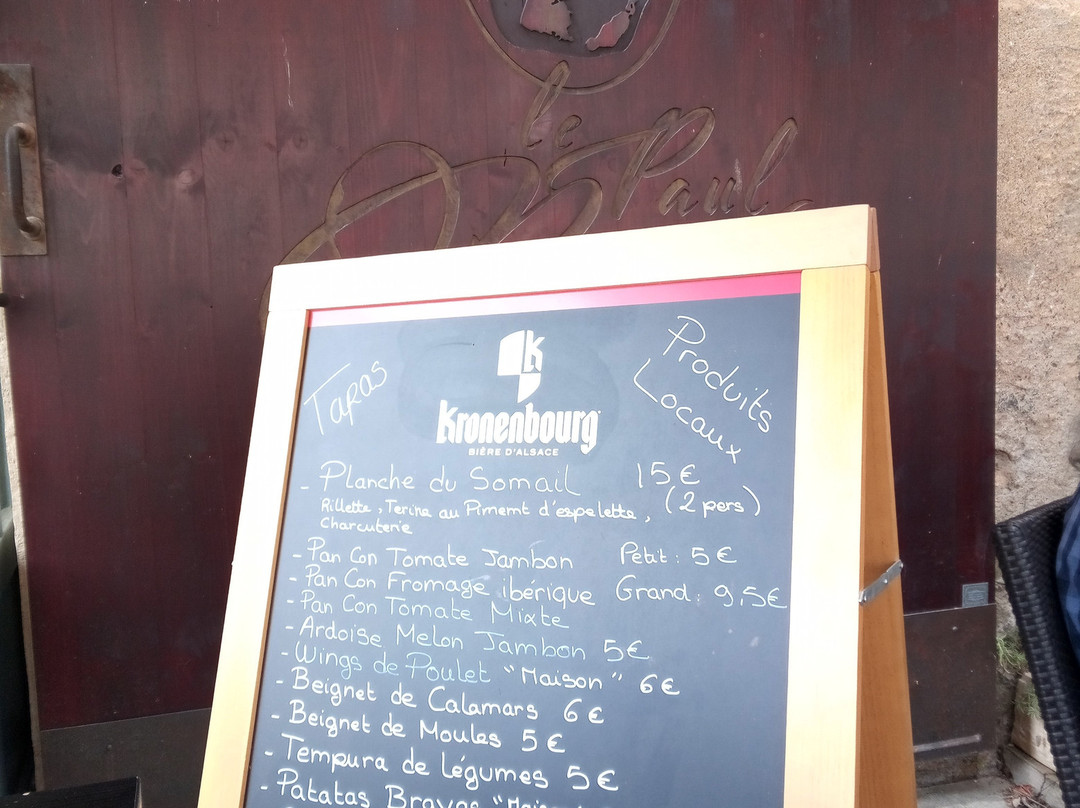 le
Paul
Tapas
Produits
Locaux
K
Kronenbourg
BIÈRE D'ALSACE
- Planche du Somail 15€
(2 pers)
Rillette, Terine au Piment d'espelette,
Charcuterie
- Pan Con Tomate Jambon Petit: 5€
- Pan Con Fromage ibérique Grand: 9,5€
- Pan Con Tomate Mixte
- Ardoise Melon Jambon 5€
- Wings de Poulet "Maison" 6€
- Beignet de Calamars 6€
- Beignet de Moules 5€
- Tempura de légumes 5€
- Patatas Bravas